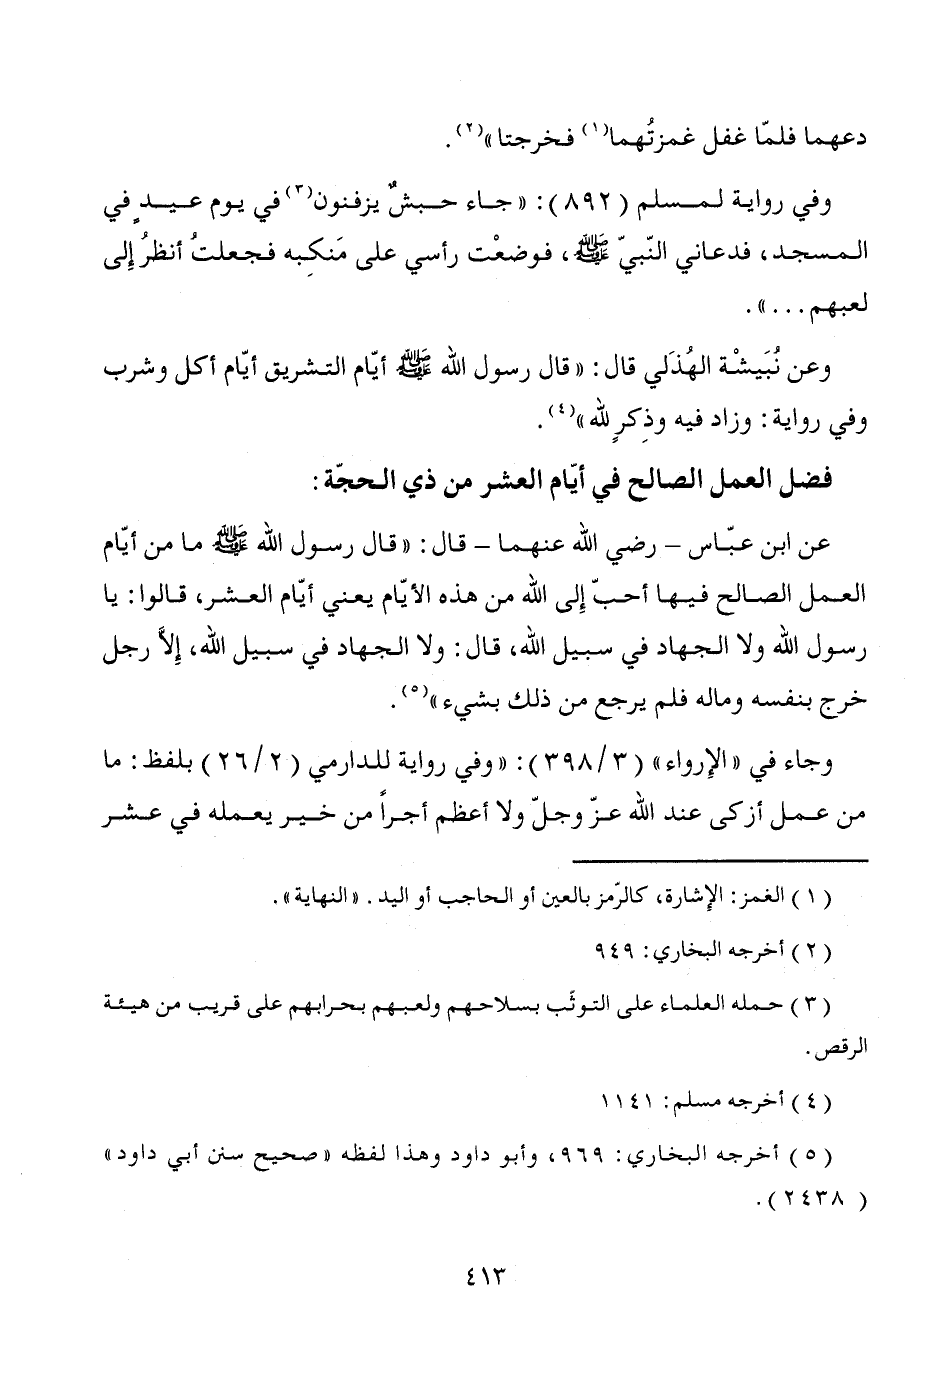 دعهما فلمّا غفل غمزتُهما(١) فخرجتا»(٢).
وفي رواية لمسلم (٨٩٢): «جاء حبشٌ يزفنون(٣) في يوم عيدٍ في
المسجد، فدعاني النّبيّ ﷺ، فوضعْت رأسي على مَنكِبه فجعلتُ أنظرُ إلى
لعبهم...».
وعن نُبَيشْة الهُذَلي قال: «قال رسول الله ﷺ أيّام التشريق أيّام أكل وشرب
وفي رواية: وزاد فيه وذكرٍ لله»(٤).
فضل العمل الصالح في أيّام العشر من ذي الحجّة:
عن ابن عبّاس – رضي الله عنهما – قال: «قال رسول الله ﷺ ما من أيّام
العمل الصالح فيها أحبّ إلى الله من هذه الأيّام يعني أيّام العشر، قالوا: يا
رسول الله ولا الجهاد في سبيل الله، قال: ولا الجهاد في سبيل الله، إلاَّ رجل
خرج بنفسه وماله فلم يرجع من ذلك بشيء»(٥).
وجاء في «الإرواء» (٣/٣٩٨): «وفي رواية للدارمي (٢/٢٦) بلفظ: ما
من عمل أزكى عند الله عزّ وجلّ ولا أعظم أجراً من خير يعمله في عشر
(١) الغمز: الإشارة، كالرّمز بالعين أو الحاجب أو اليد. «النهاية».
(٢) أخرجه البخاري: ٩٤٩
(٣) حمله العلماء على التوثَّب بسلاحهم ولعبهم بحرابهم على قريب من هيئة
الرقص.
(٤) أخرجه مسلم: ١١٤١
(٥) أخرجه البخاري: ٩٦٩، وأبو داود وهذا لفظه «صحيح سنن أبي داود»
(٢٤٣٨).
٤١٣